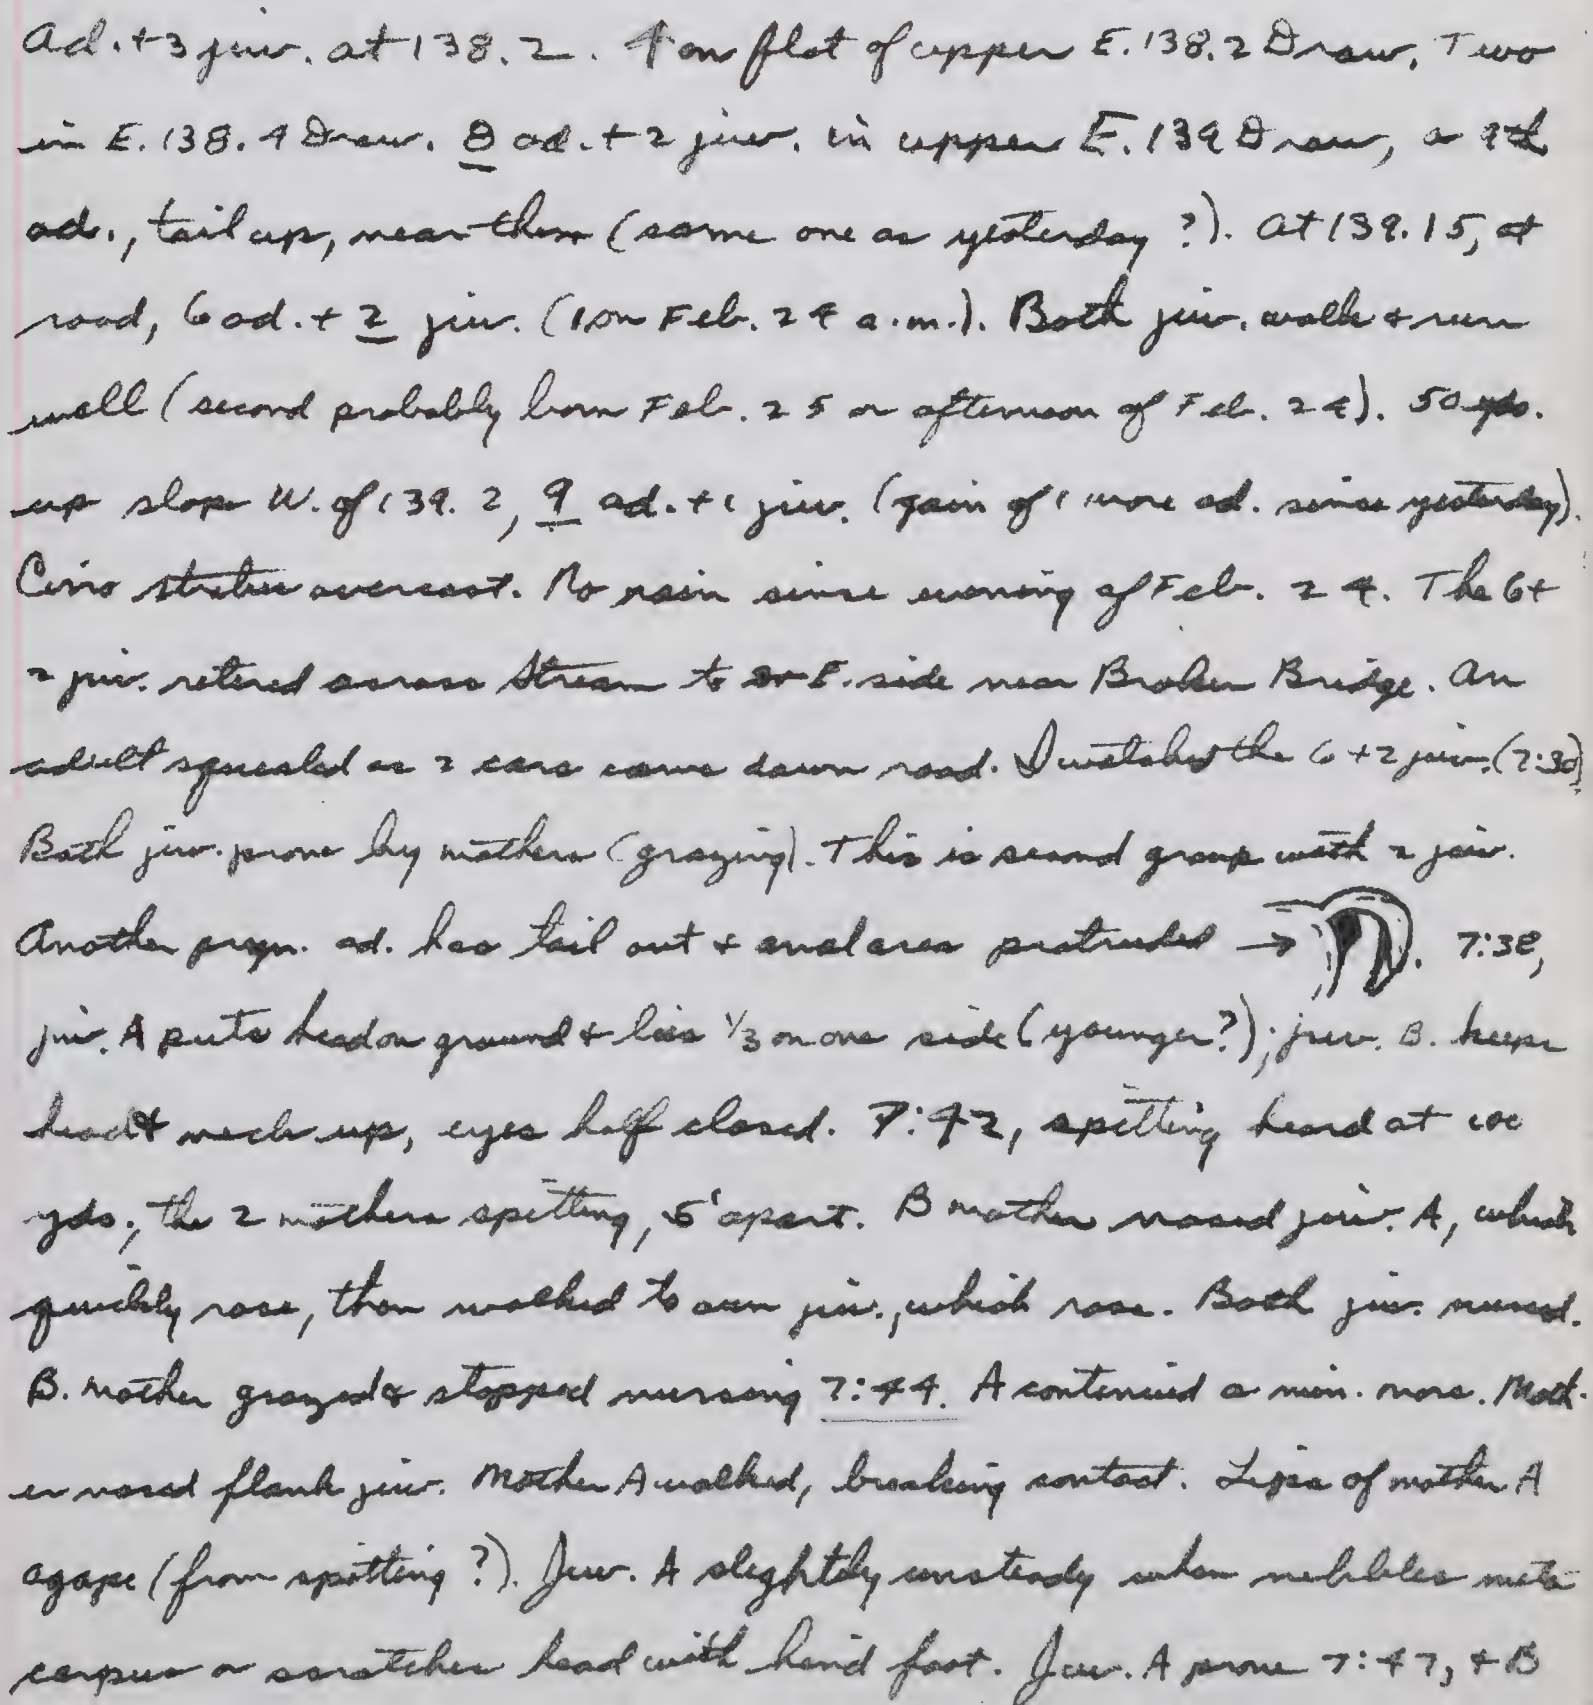 Ad. + 3 juv. at 138.2. 4 on flat of upper E. 138.2 Draw. Two
in E. 138.4 Draw. 8 ad. + 2 juv. in upper E. 139 Draw, a 9th
ad., tail up, near them (same one as yesterday?). At 139.15, at
road, 6 ad. + 2 juv. (1 on Feb. 24 a.m.). Both juv. walk & run
well (second probably born Feb. 25 or afternoon of Feb. 24). 50 yds.
up slope W. of 139.2, 9 ad. + 1 juv. (gain of 1 more ad. since yesterday).
Cirro stratus overcast. No rain since evening of Feb. 24. The 6 +
2 juv. retired across stream to E. side near Broken Bridge. An
adult squealed as 2 cars came down road. I watched the 6 + 2 juv. (7:30).
Both juv. prone by mothers (grazing). This is second group with 2 juv.
Another pregn. ad. has tail out & anal area protruded → . 7:38,
juv. A puts head on ground & lies 1/3 on one side (younger?); juv. B. keeps
head & neck up, eyes half closed. 7:42, spitting heard at 100
yds.; the 2 mothers spitting, 5' apart. B mother nosed juv. A, which
quickly rose, then walked to own juv., which rose. Both juv. nursed.
B. mother grazed & stopped nursing 7:44. A continued a min. more. Moth-
er nosed flank juv. Mother A walked, breaking contact. Lips of mother A
agape (from spitting?). Juv. A slightly unsteady when nibbles meta
carpus or scratches head with hind foot. Juv. A prone 7:47, & B